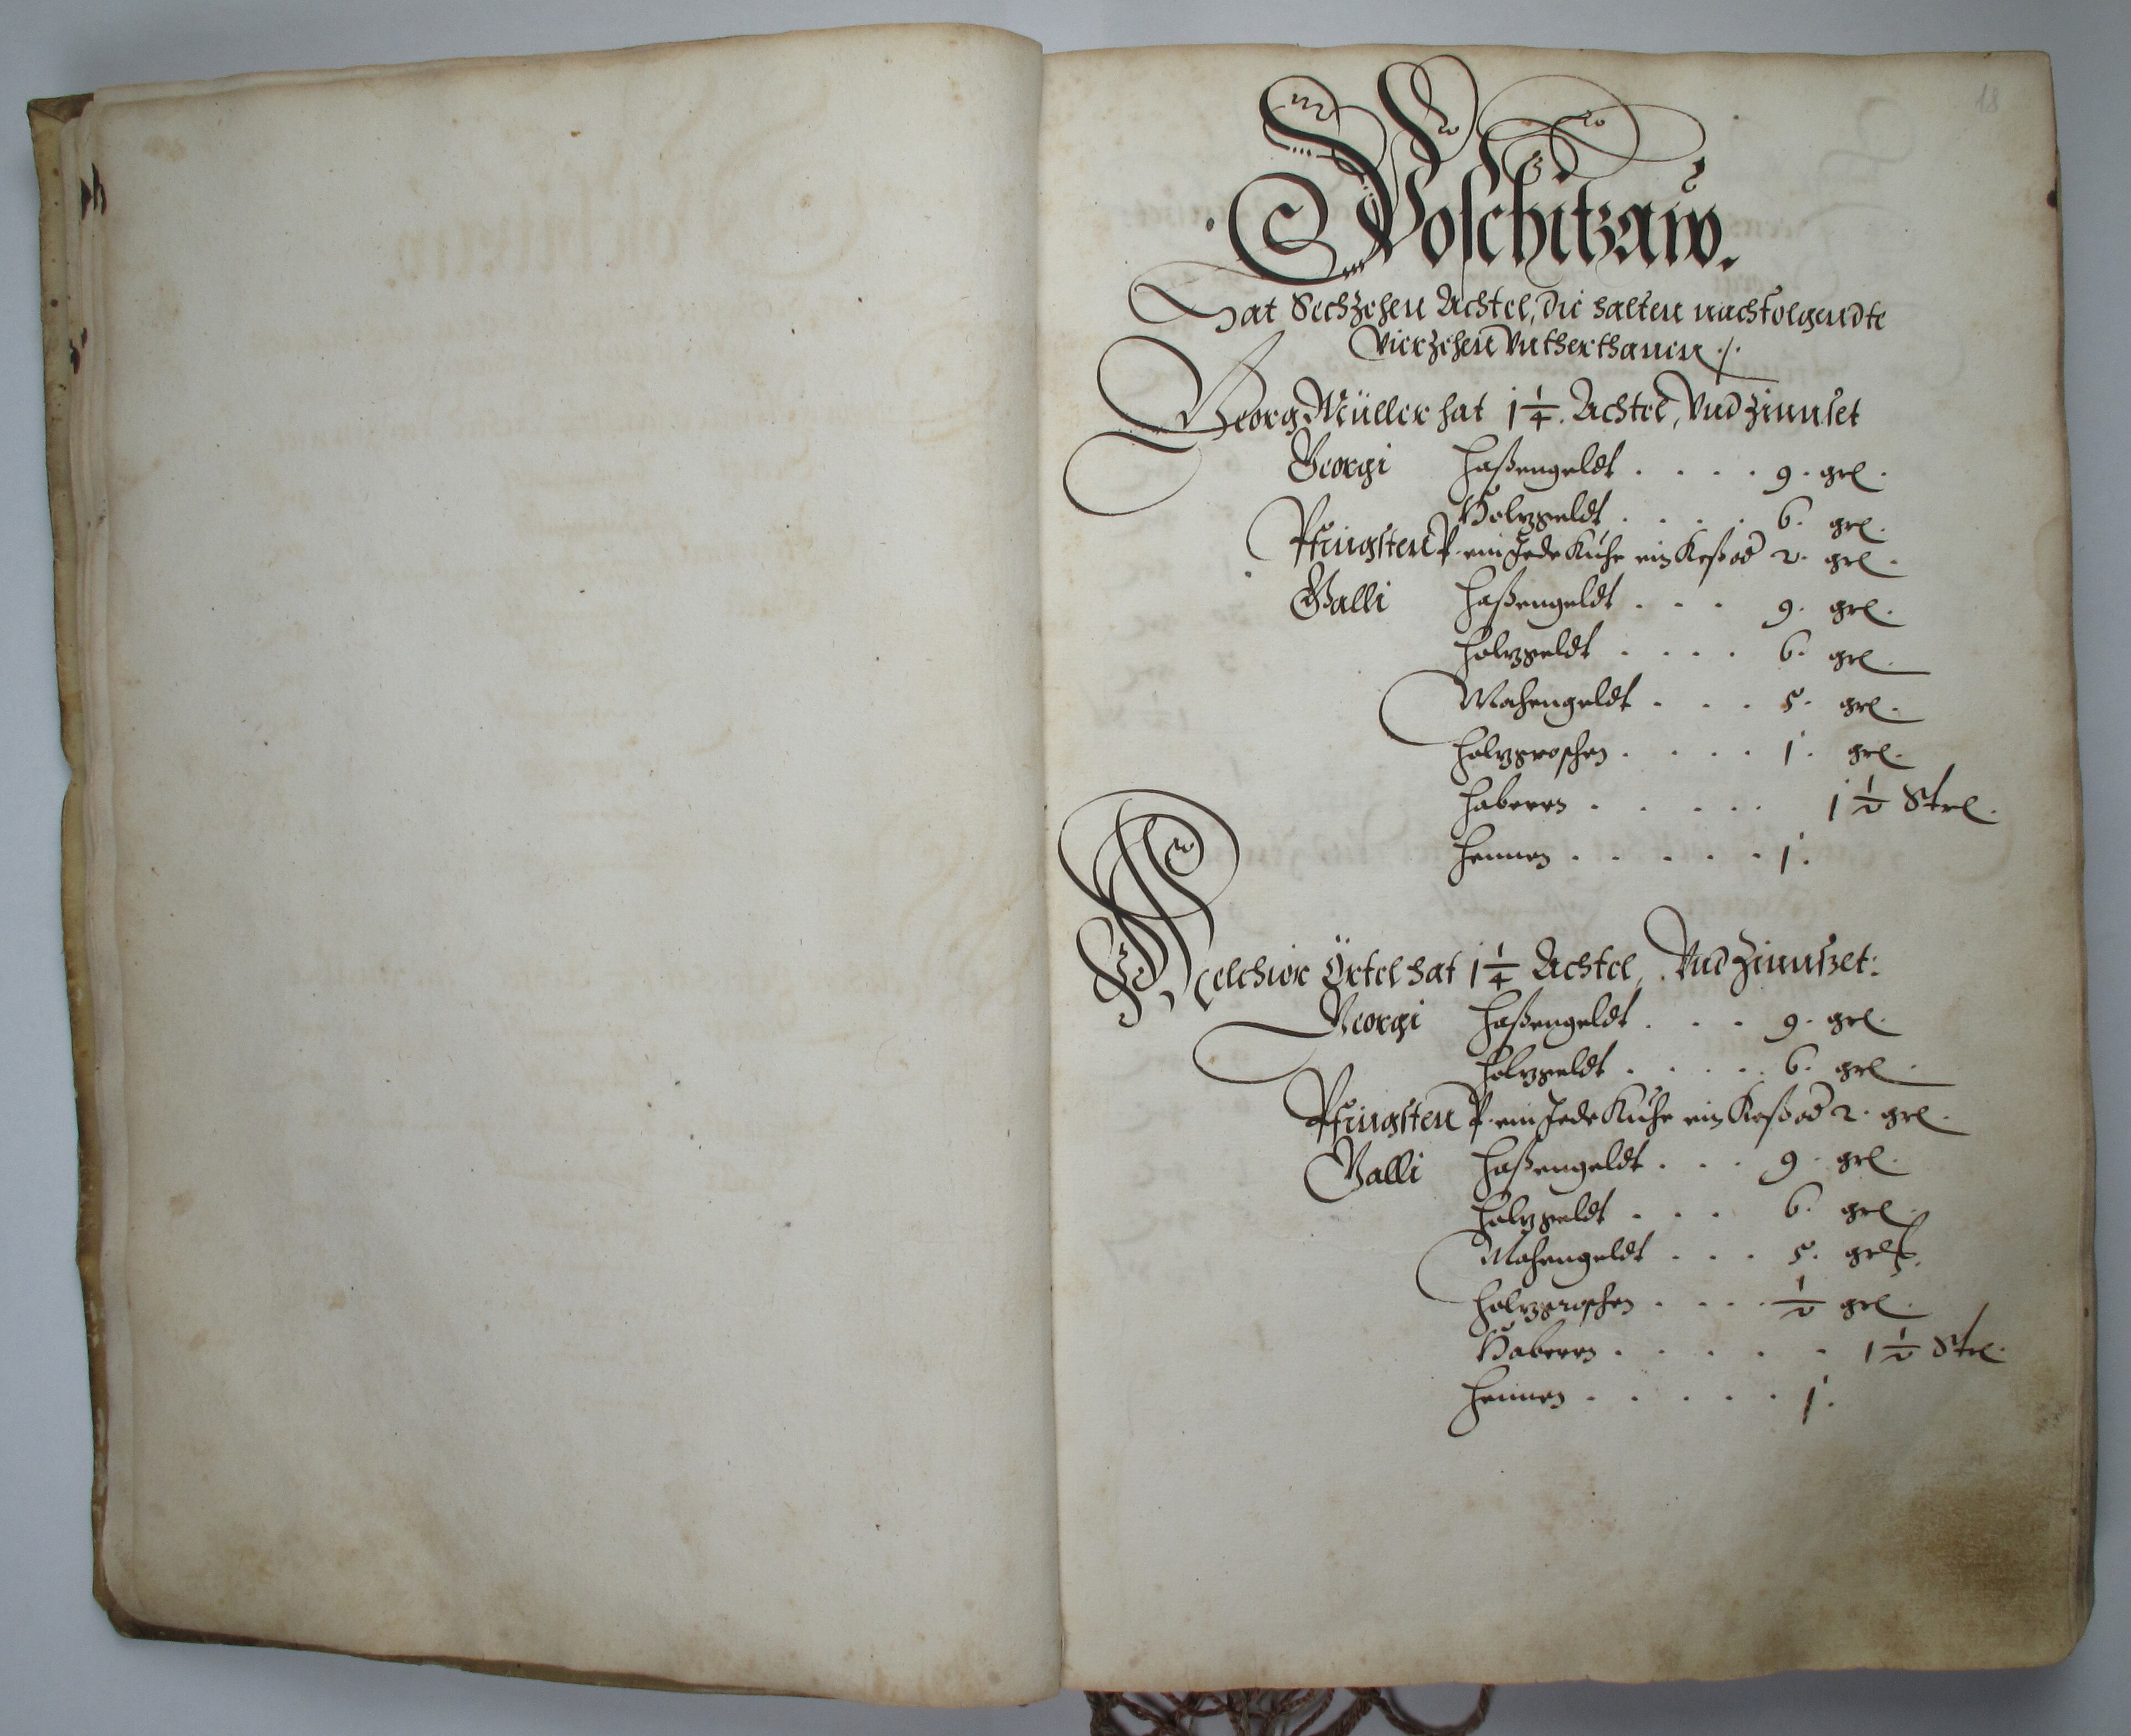 18
Woschitzaw.
Hat Sechzehen Achtel, die halten nachfolgendte
Vierzehen Vntherthanen ./.
Georg Müller hat 1 1/4. Achtel, Vnd Zinnset
Georgi Haßengeldt . . . . 9. grl.
Holzgeldt . . . . 6. grl.
Pfingsten P. ein Jede Kuhe ein Keß od 2. grl.
Galli Haßengeldt . . . 9. grl.
Holzgeldt . . . . 6. grl.
Mahengeldt . . . 5. grl.
Holzgroschen . . . . 1. grl.
Habern . . . . . 1 1/2 Strl.
Hennen . . . . . 1.
Melchior Örtel hat 1 1/4 Achtel, Vnd Zinnszet:
Georgi Haßengeldt . . . 9. grl.
Holzgeldt . . . . . 6. grl.
Pfingsten P. ein Jede Kuhe ein Keß od 2. grl.
Galli Haßengeldt . . . 9. grl.
Holzgeldt . . . 6. grl.
Mahengeldt . . . 5. grl.
Holzgroschen . . . . 1/2 grl.
Habern . . . . . 1 1/2 Strl.
Hennen . . . . . 1.